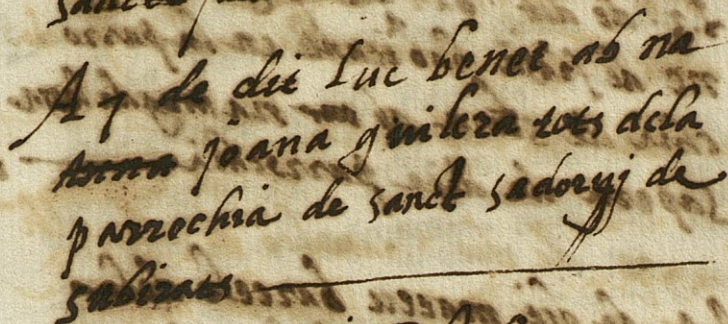 A 7 de dit luc benet ab na
joana guilera tots dela
parrochia de sanct sadornj de
subirats